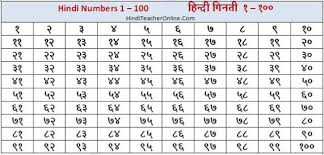 Hindi Numbers 1 – 100 हिन्दी गिनती १ – १००
HindiTeacherOnline.Com
१ २ ३ ४ ५ ६ ७ ८ ९ १०
११ १२ १३ १४ १५ १६ १७ १८ १९ २०
२१ २२ २३ २४ २५ २६ २७ २८ २९ ३०
३१ ३२ ३३ ३४ ३५ ३६ ३७ ३८ ३९ ४०
४१ ४२ ४३ ४४ ४५ ४६ ४७ ४८ ४९ ५०
५१ ५२ ५३ ५४ ५५ ५६ ५७ ५८ ५९ ६०
६१ ६२ ६३ ६४ ६५ ६६ ६७ ६८ ६९ ७०
७१ ७२ ७३ ७४ ७५ ७६ ७७ ७८ ७९ ८०
८१ ८२ ८३ ८४ ८५ ८६ ८७ ८८ ८९ ९०
९१ ९२ ९३ ९४ ९५ ९६ ९७ ९८ ९९ १००